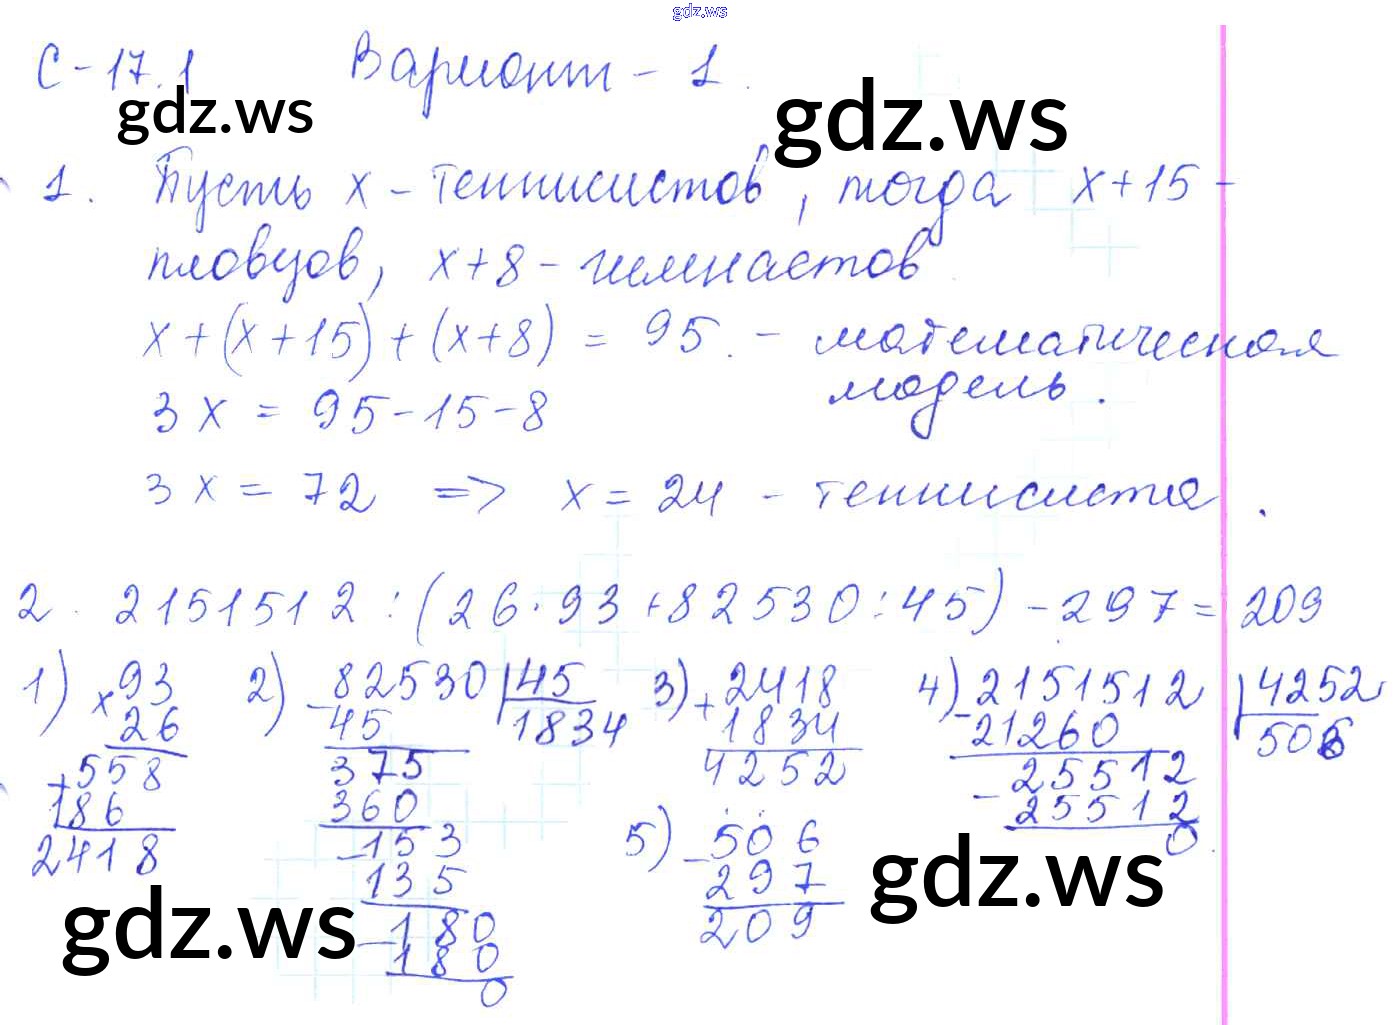 gdz.ws
С-17.1 Вариант - 1.
gdz.ws gdz.ws
1. Пусть x - теннисистов, тогда x+15 -
пловцов, x+8 - гимнастов
x+(x+15)+(x+8) = 95. - математическая
модель.
3x = 95-15-8
3x = 72 => x = 24 - теннисиста.
2. 2151512:(26·93+82530:45)-297=209
1) 93 2) 82530 45 3) 2418 4) 2151512 4252
× 26 - 45 1834 + 1834 - 21260 506
+558 375 4252 25512
186 360 - 25512
2418 -153 5) -506 0
135 297
-180 209
180
0
gdz.ws gdz.ws